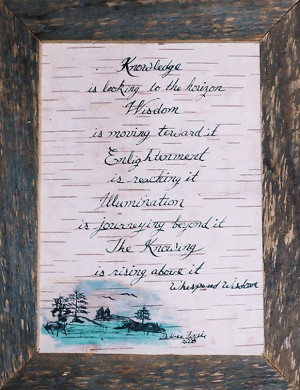 Knowledge
is looking to the horizon
Wisdom
is moving toward it
Enlightenment
is reaching it
Illumination
is journeying beyond it
The Knowing
is rising above it
Whispered Wisdom